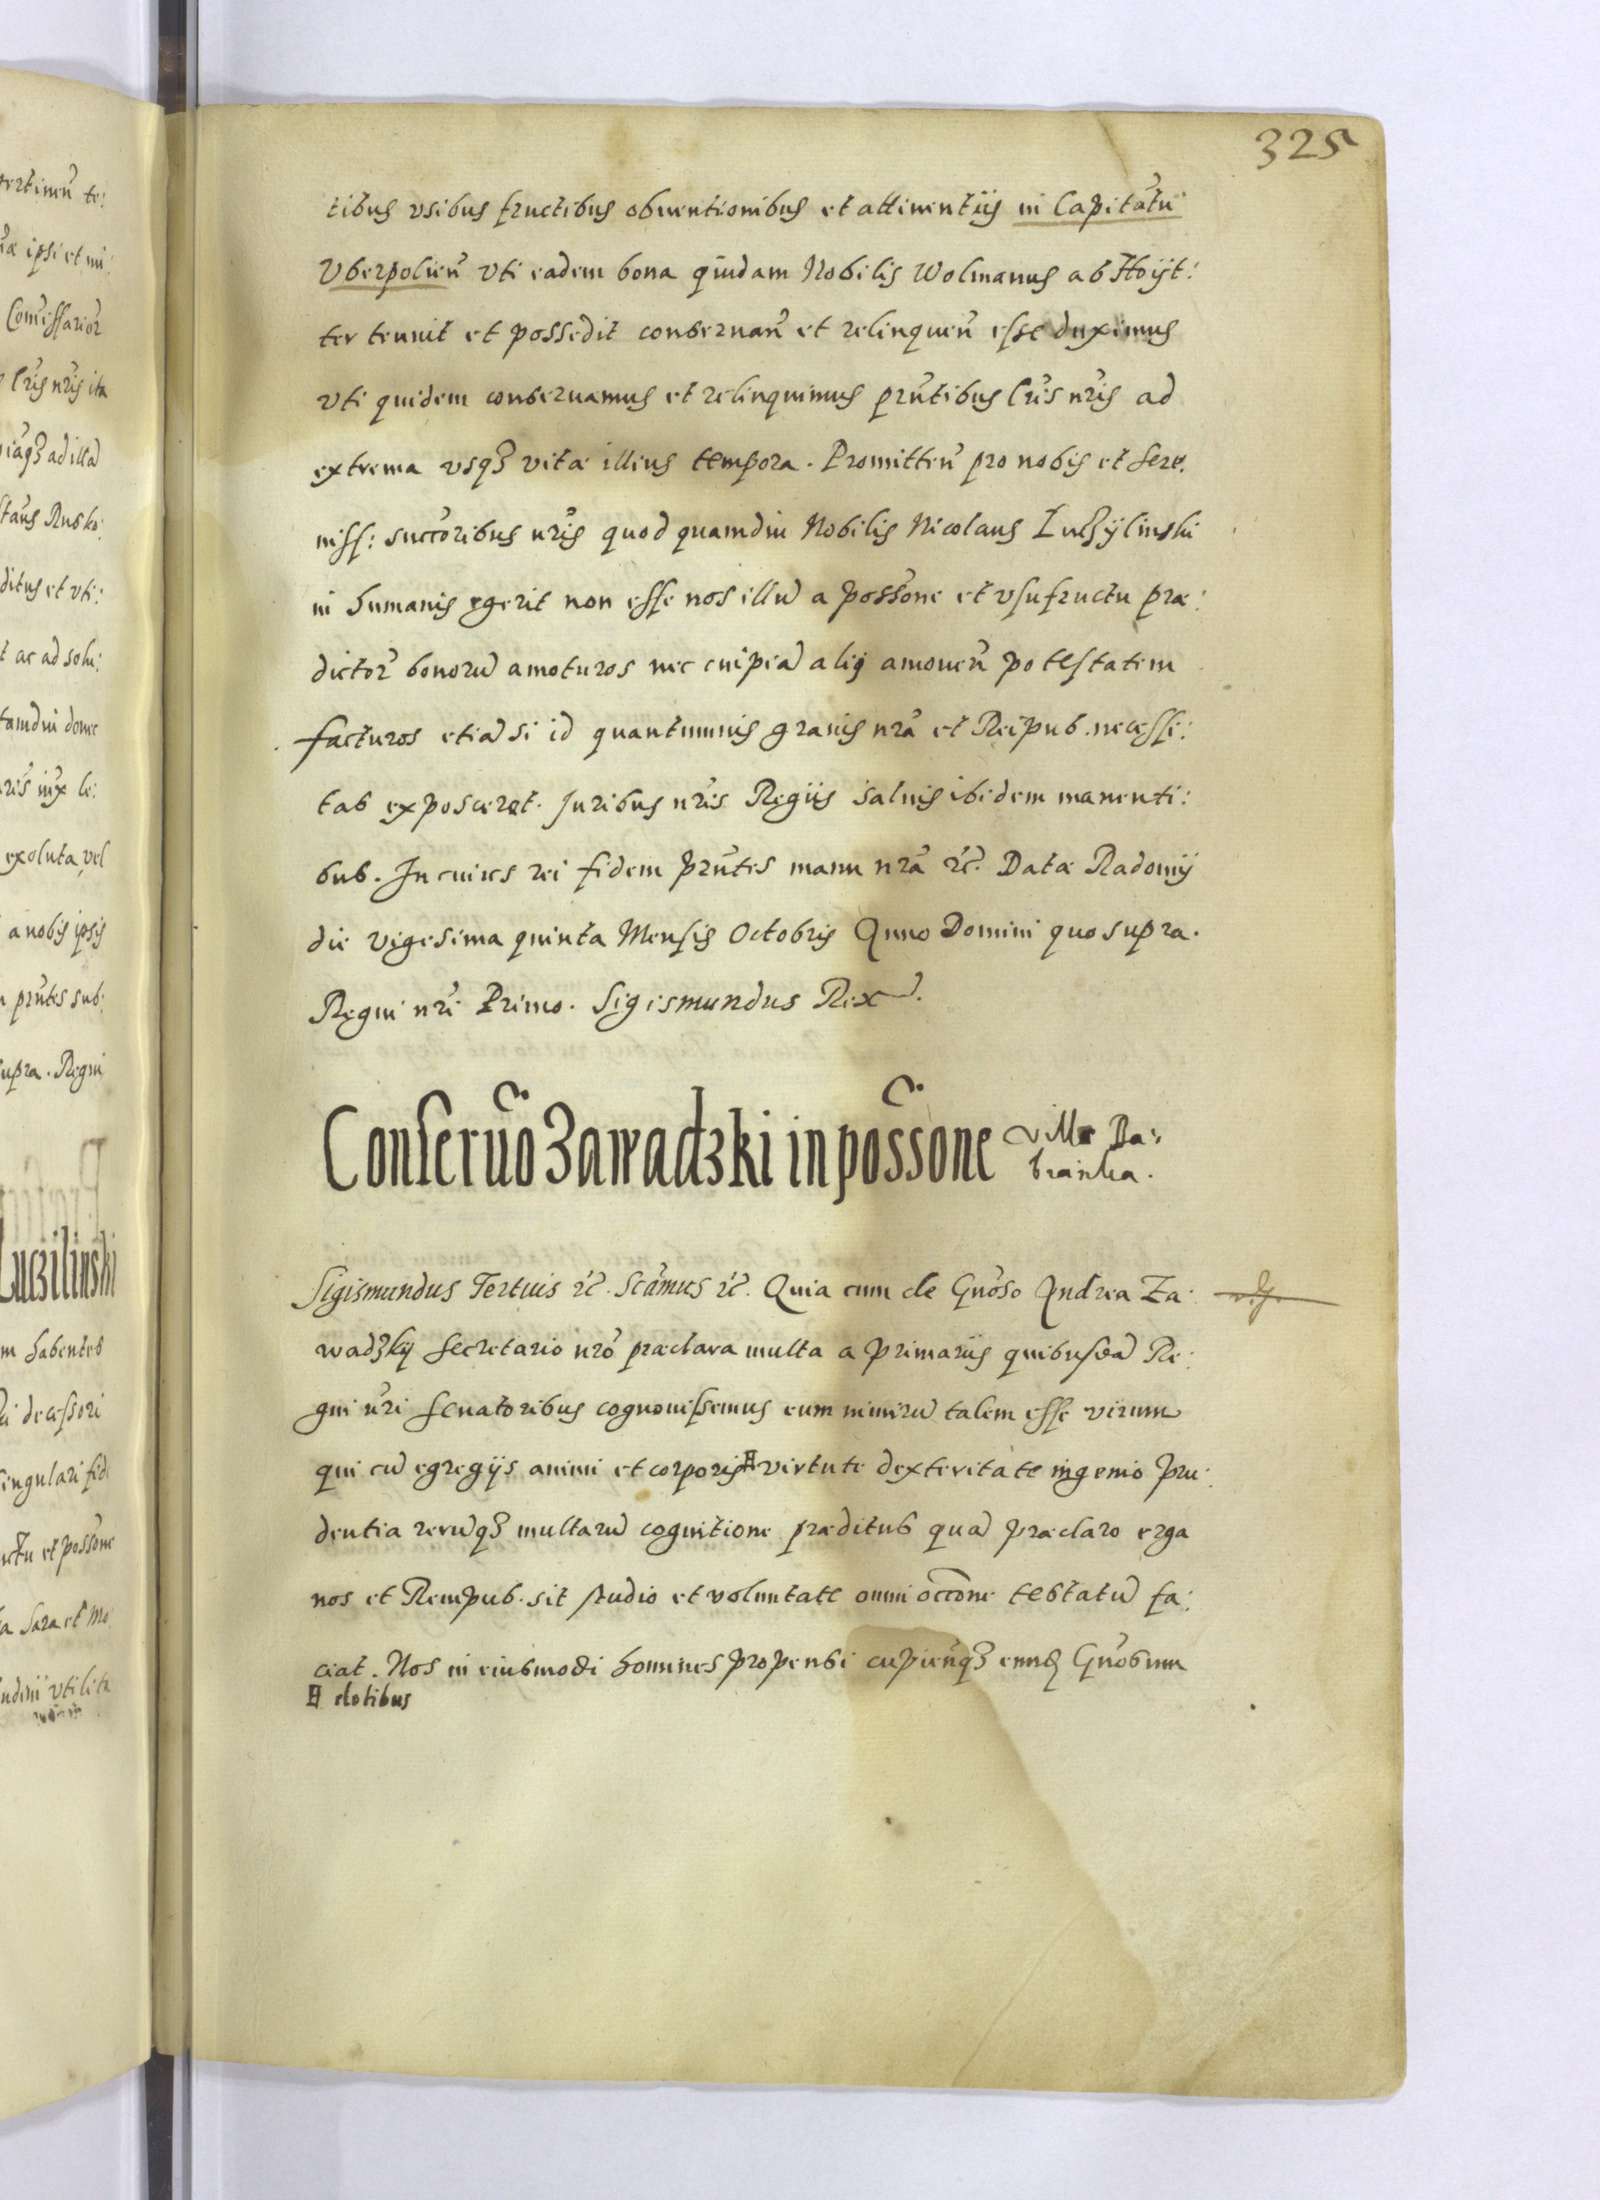 325
tibus vsibus fructibus obuentionibus et attinentiis in Capitatu
Vberpolien̄ vti eadem bona quidam Nobilis Wolmanus ab Hoijt:
ter tenuit et possedit conseruan̄ et relinquen̄ esse duximus
vti quidem conseruamus et relinquimus prn̄tibus lris nris ad
extrema vsqꝫ vitæ illius tempora. Promitten̄ pro nobis et Sere.
niss: succoribus nris quod quamdiu Nobilis Nicolaus Luczijlinski
in humanis egerit non esse nos illū a possone et vsufructu præ:
dictor̄ bonorū amoturos nec cuipiā alij amouen̄ potestatem
facturos etiā si id quantumuis grauis nrā et Reipub. necessi:
tas exposcerat. Juribus nris Regiis saluis ibidem manenti:
bus. In cuius rei fidem prn̄tes manu nrā rc̄. Datæ Radomij
die vigesima quinta Mensis Octobris Anno Domini quo supra.
Regni nri Primo. Sigismundus Rex.
Conseruo Zawadzki in possone villæ Da:
branka.
Sigismundus Tertius rc̄. Scāmus rc̄. Quia cum de Gnoso Andrea Za:
wadzkij Secretario nro præclara multa a primariis quibusdā Re:
gni nri Senatoribus cognouissemus eum nimirū talem esse virum
qui cū egregijs animi et corporis virtute dexteritate ingenio pru:
dentia rerūqꝫ multarū cognitione præditus quā præclaro erga
nos et Rempub. sit studio et voluntate omni occone testatū fa:
ciat. Nos in eiusmodi homines propensi cupien̄qꝫ eundē Gnosum
dotibus